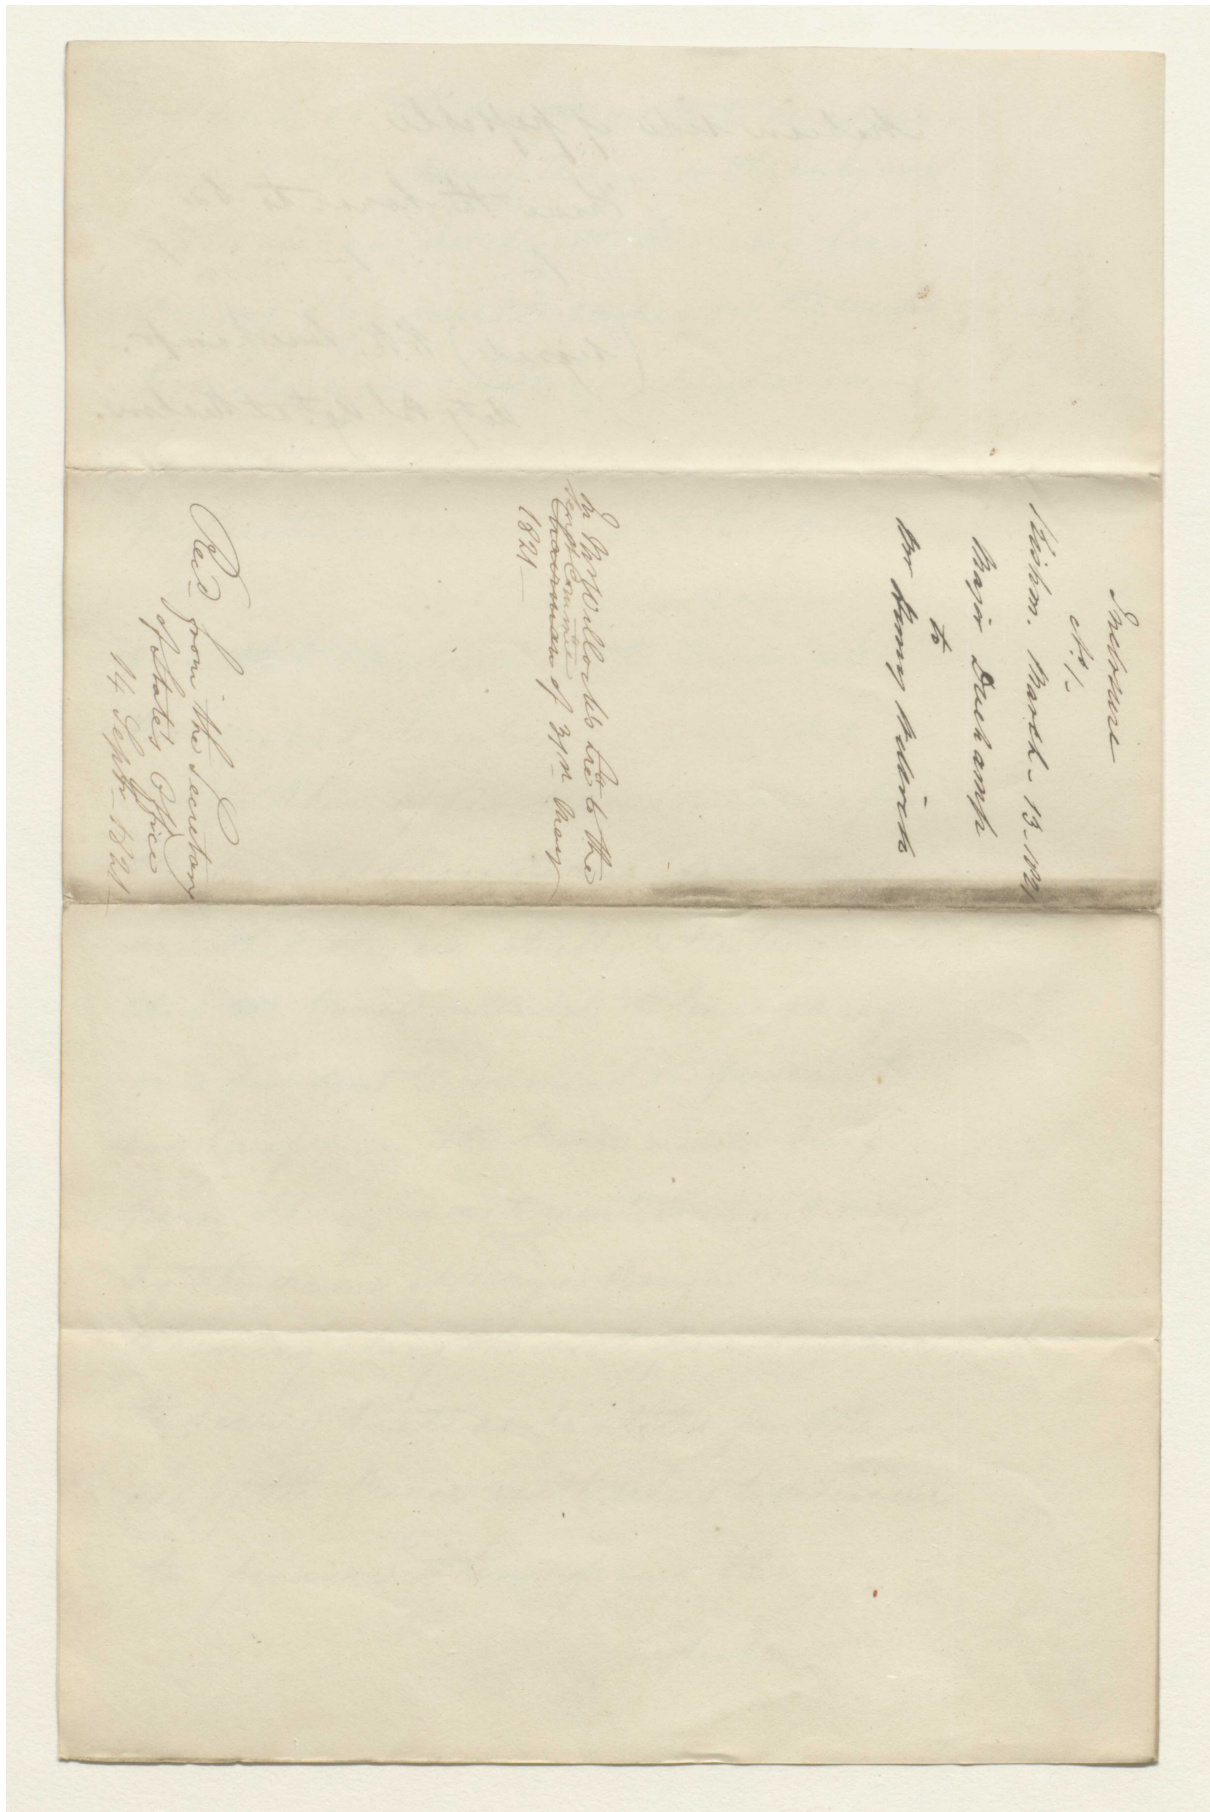 Inclosure
No. 1.
Kishm. March. 13. 1821
Major Duchamp
to
Dr Henry Willock
In Mr Willock's Lre to the
Secret Committee
Chairman of 31st May
1821
Recd from the Secretary
of State's Office
14 Septr 1821